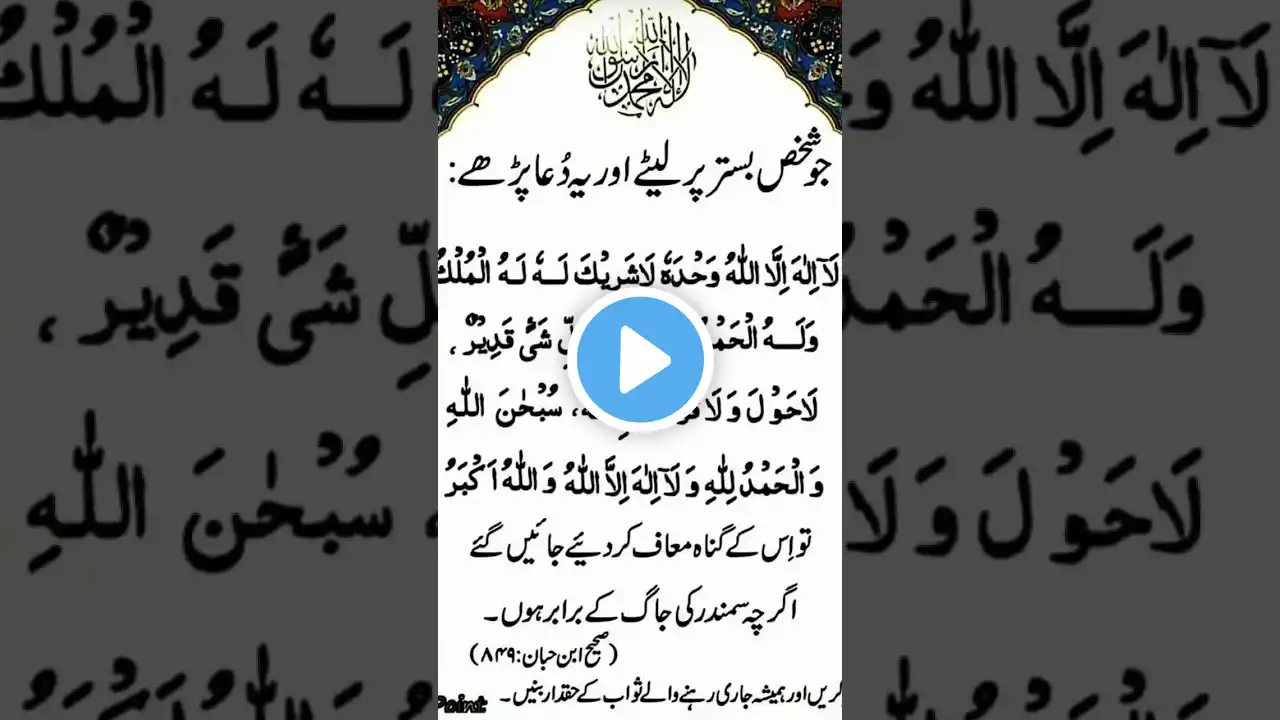 لا اله الا الله محمد رسول الله
جو شخص بستر پر لیٹے اور یہ دُعا پڑھے:
لَآ اِلٰهَ اِلَّا اللّٰهُ وَحْدَهٗ لَا شَرِيْكَ لَـهٗ لَهُ الْمُلْكُ
وَلَـــهُ الْحَمْدُ شَیْءٍ قَدِيْرٌ،
لَاحَوْلَ وَلَا سُبْحٰنَ اللّٰهِ
وَالْحَمْدُ لِلّٰهِ وَلَآ اِلٰهَ اِلَّا اللّٰهُ وَاللّٰهُ اَكْبَرُ
تو اِس کے گناہ معاف کر دئیے جائیں گئے
اگرچہ سمندر کی جاگ کے برابر ہوں۔
(صحیح ابن حبان: ۸۴۹)
کریں اور ہمیشہ جاری رہنے والے ثواب کے حقدار بنیں۔
Point